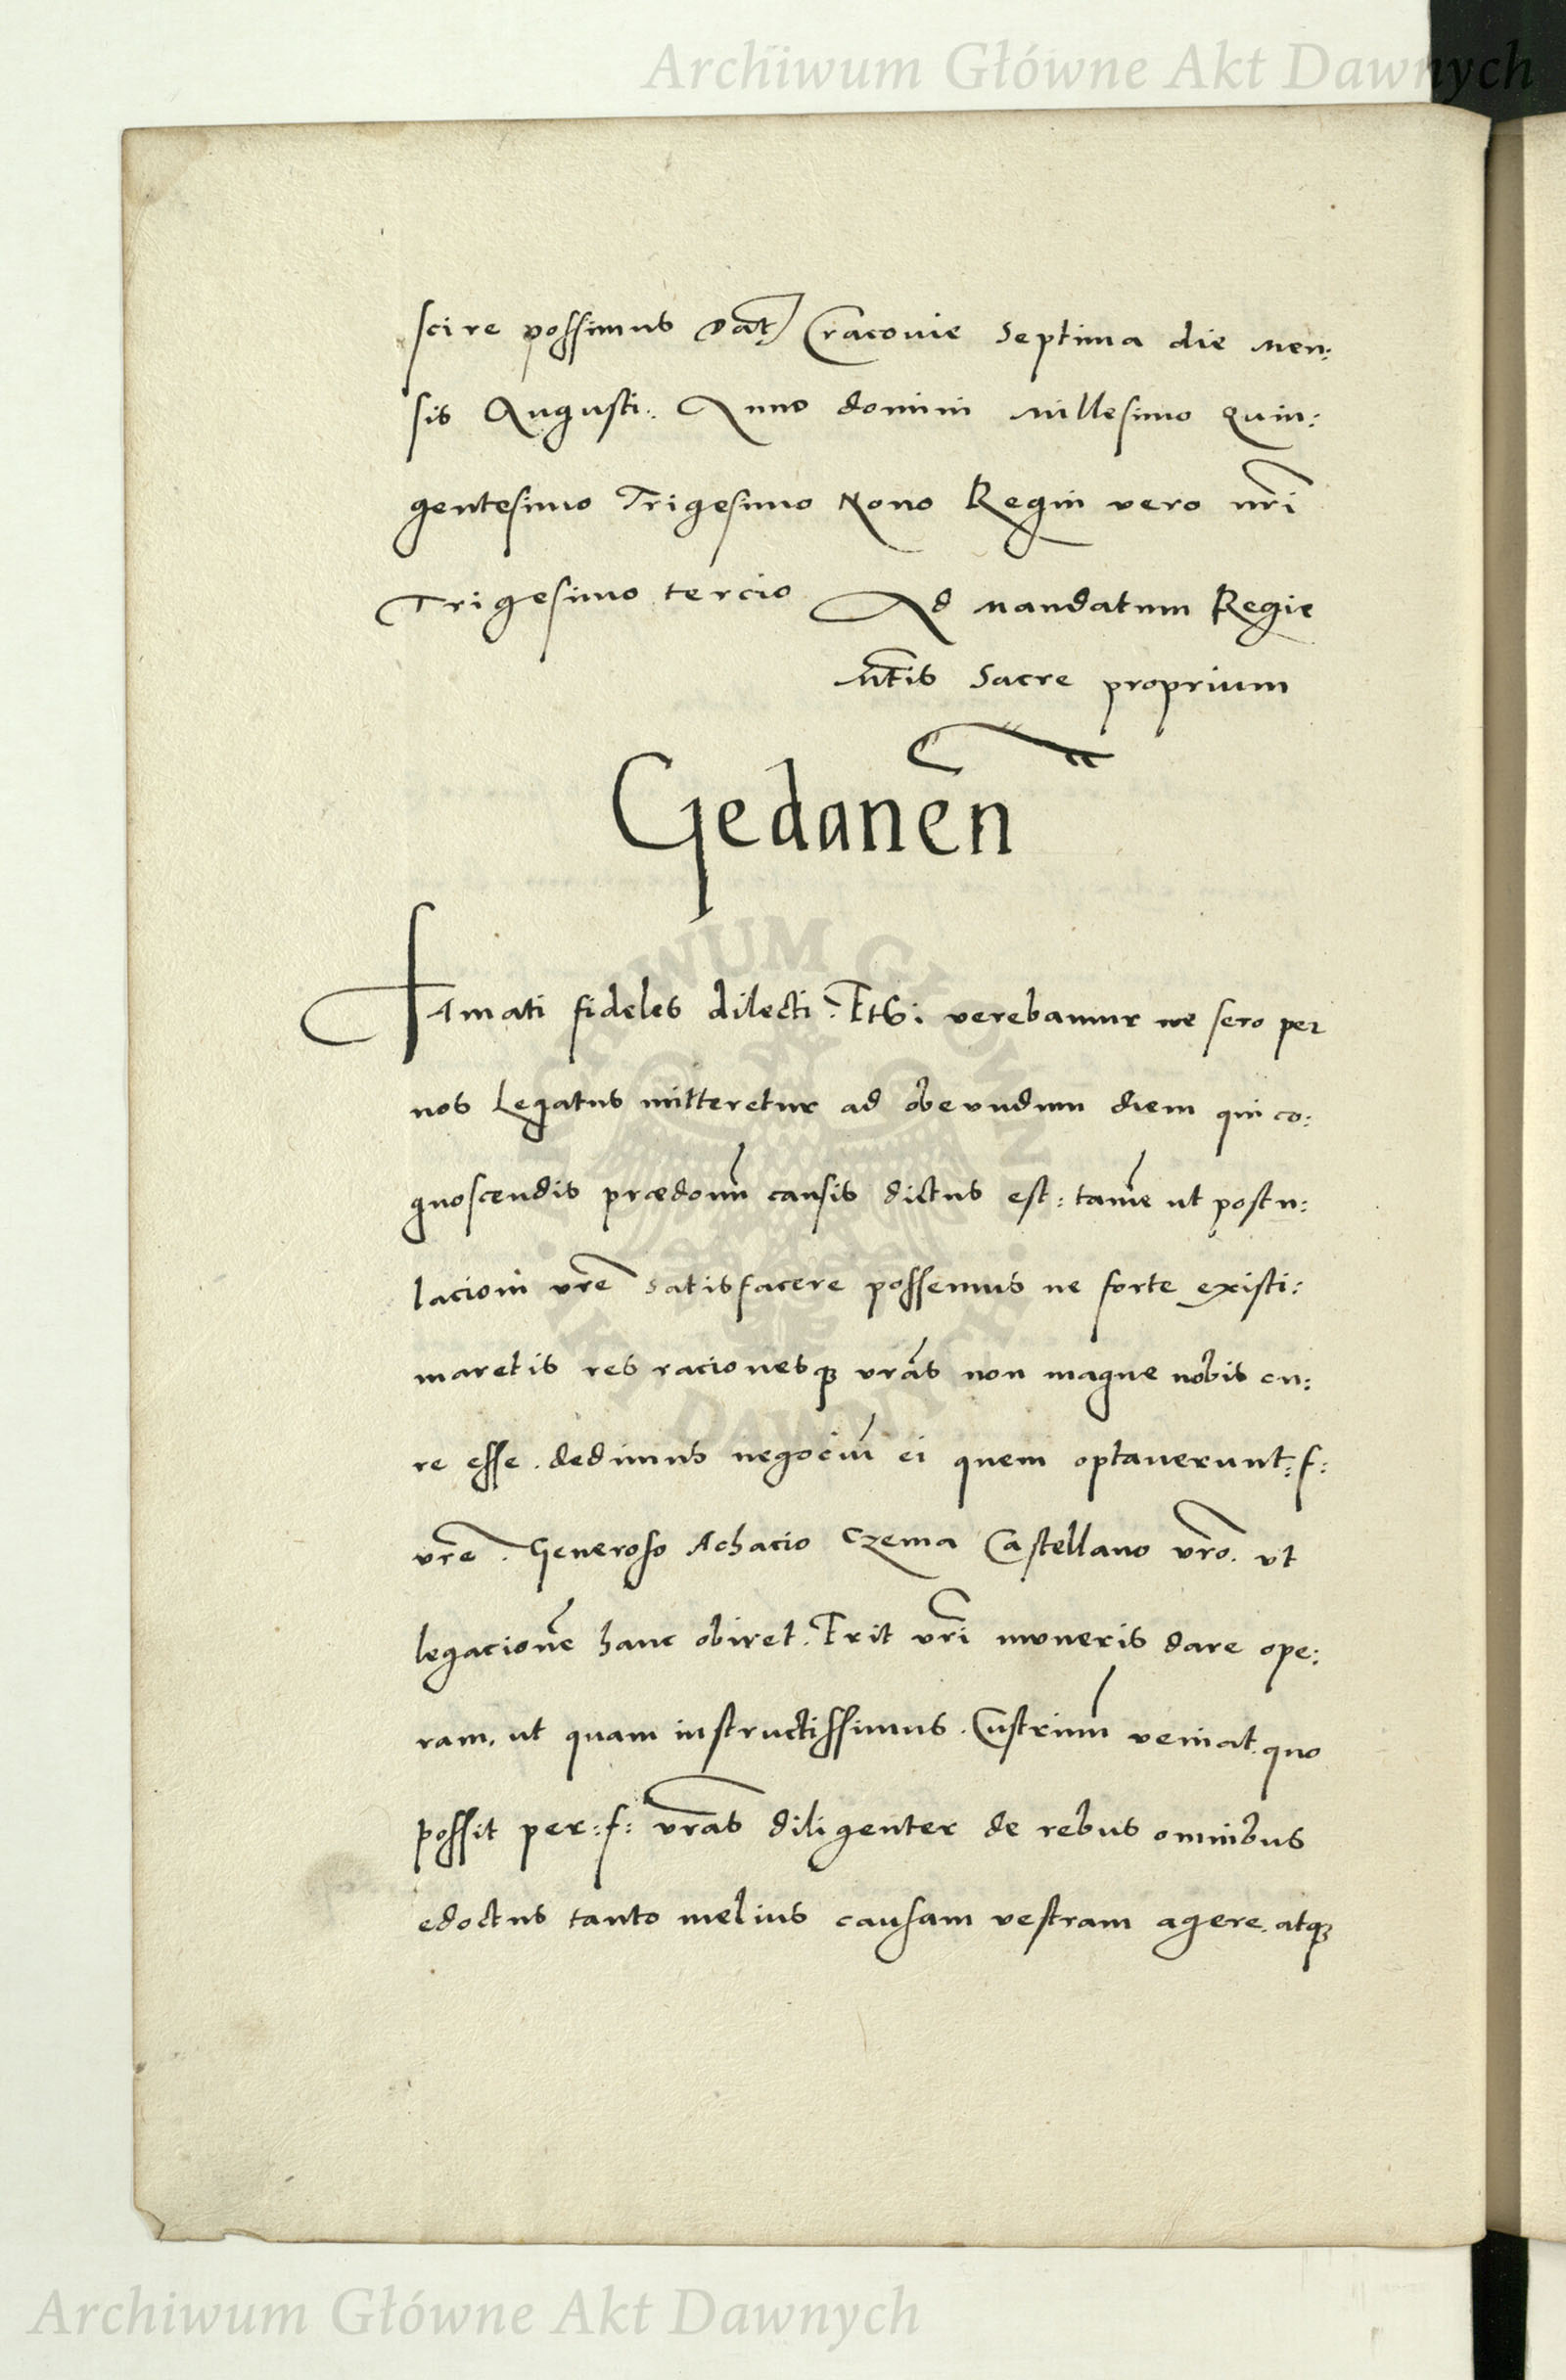 Archiwum Główne Akt Dawnych
scire possimus Dat Cracovie Septima die Men:
sis Augusti. Anno domini Millesimo Quin:
gentesimo Trigesimo Nono Regni vero nr̄i
Trigesimo tercio Ad Mandatum Regie
Mt̄is Sacre proprium
Gedaneñ
Famati fideles dilecti. Etsi verebamur ne sero per
nos Legatus mitteretur ad obeundum diem qui co:
gnoscendis prædonū causis dictus est: tamē ut postu:
lacioni vr̄e satisfacere possemus ne forte existi:
maretis res racionesqꝫ vrās non magne nobis cu:
re esse. dedimus negociū ei quem optaverunt: f:
vr̄e. Generoso Achacio Czema Castellano vr̄o. ut
legacionē hanc obiret. Erit vr̄i muneris dare ope:
ram, ut quam instructissimus. Custrinū veniat. quo
possit per: f: vr̄as diligenter de rebus omnibus
edoctus tanto melius causam vestram agere. atqꝫ
ARCHIWUM GŁÓWNE
AKT DAWNYCH
Archiwum Główne Akt Dawnych